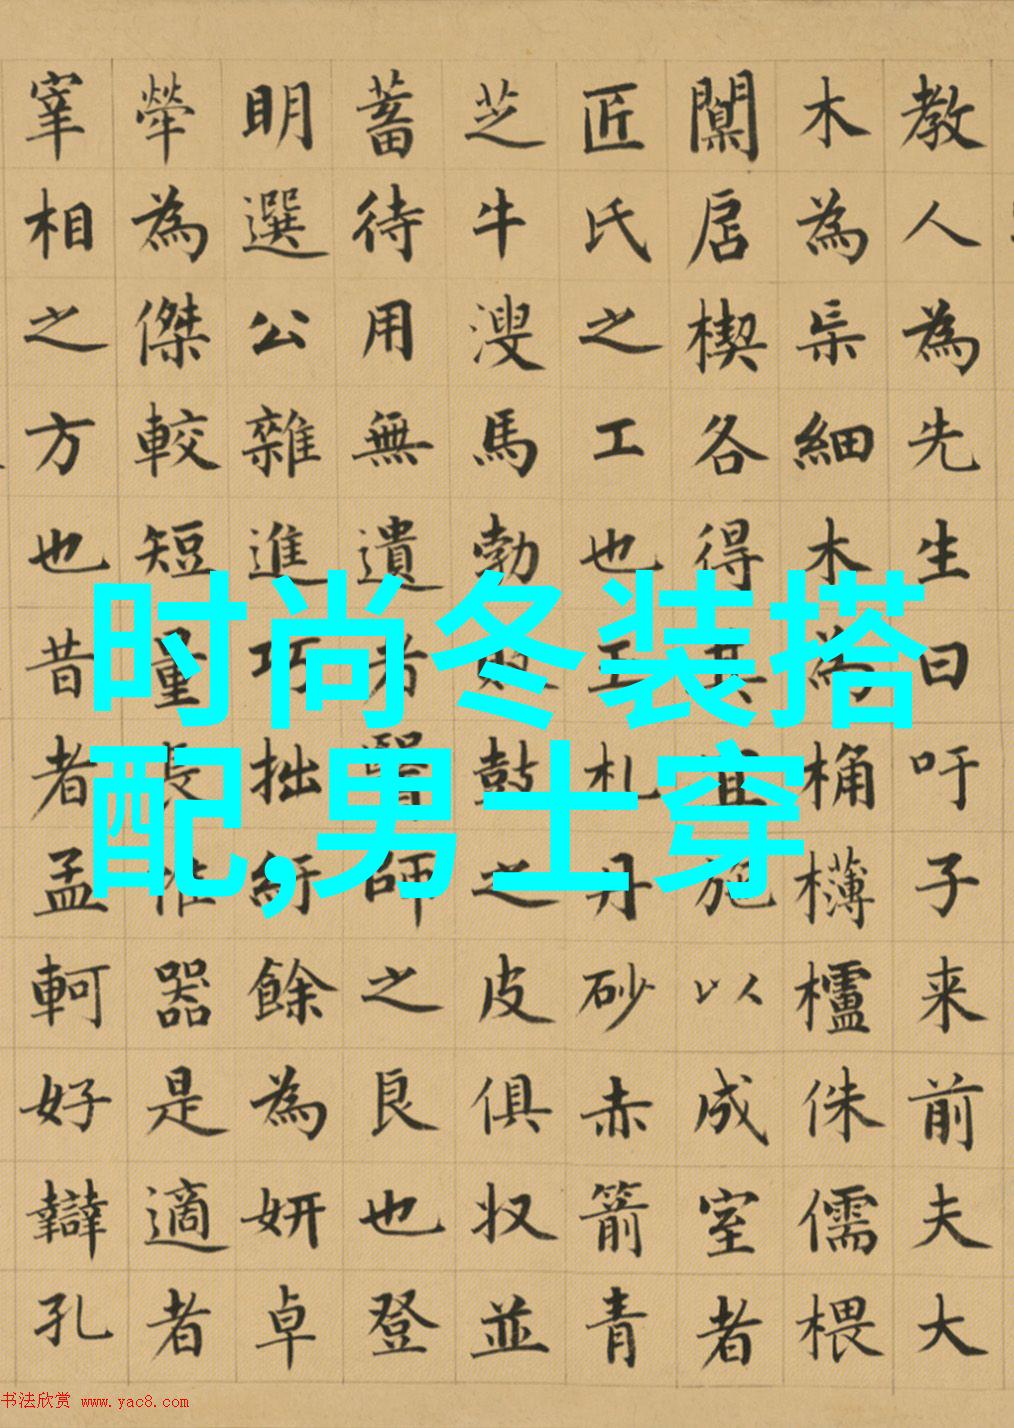 教人為先生曰吁子来前夫大
木為杗細木為桷欂櫨侏儒椳
闑扂楔各得其宜施以成室者
匠氏之工也玉札丹砂赤箭青
芝牛溲馬勃敗鼓之皮俱収並
蓄待用無遺者醫師之良也登
明選公雜進巧拙紆餘為妍卓
犖為傑較短量長惟器是適者
宰相之方也昔者孟軻好辯孔
时尚冬装搭
配,男士穿
书法欣赏 www.yac8.com